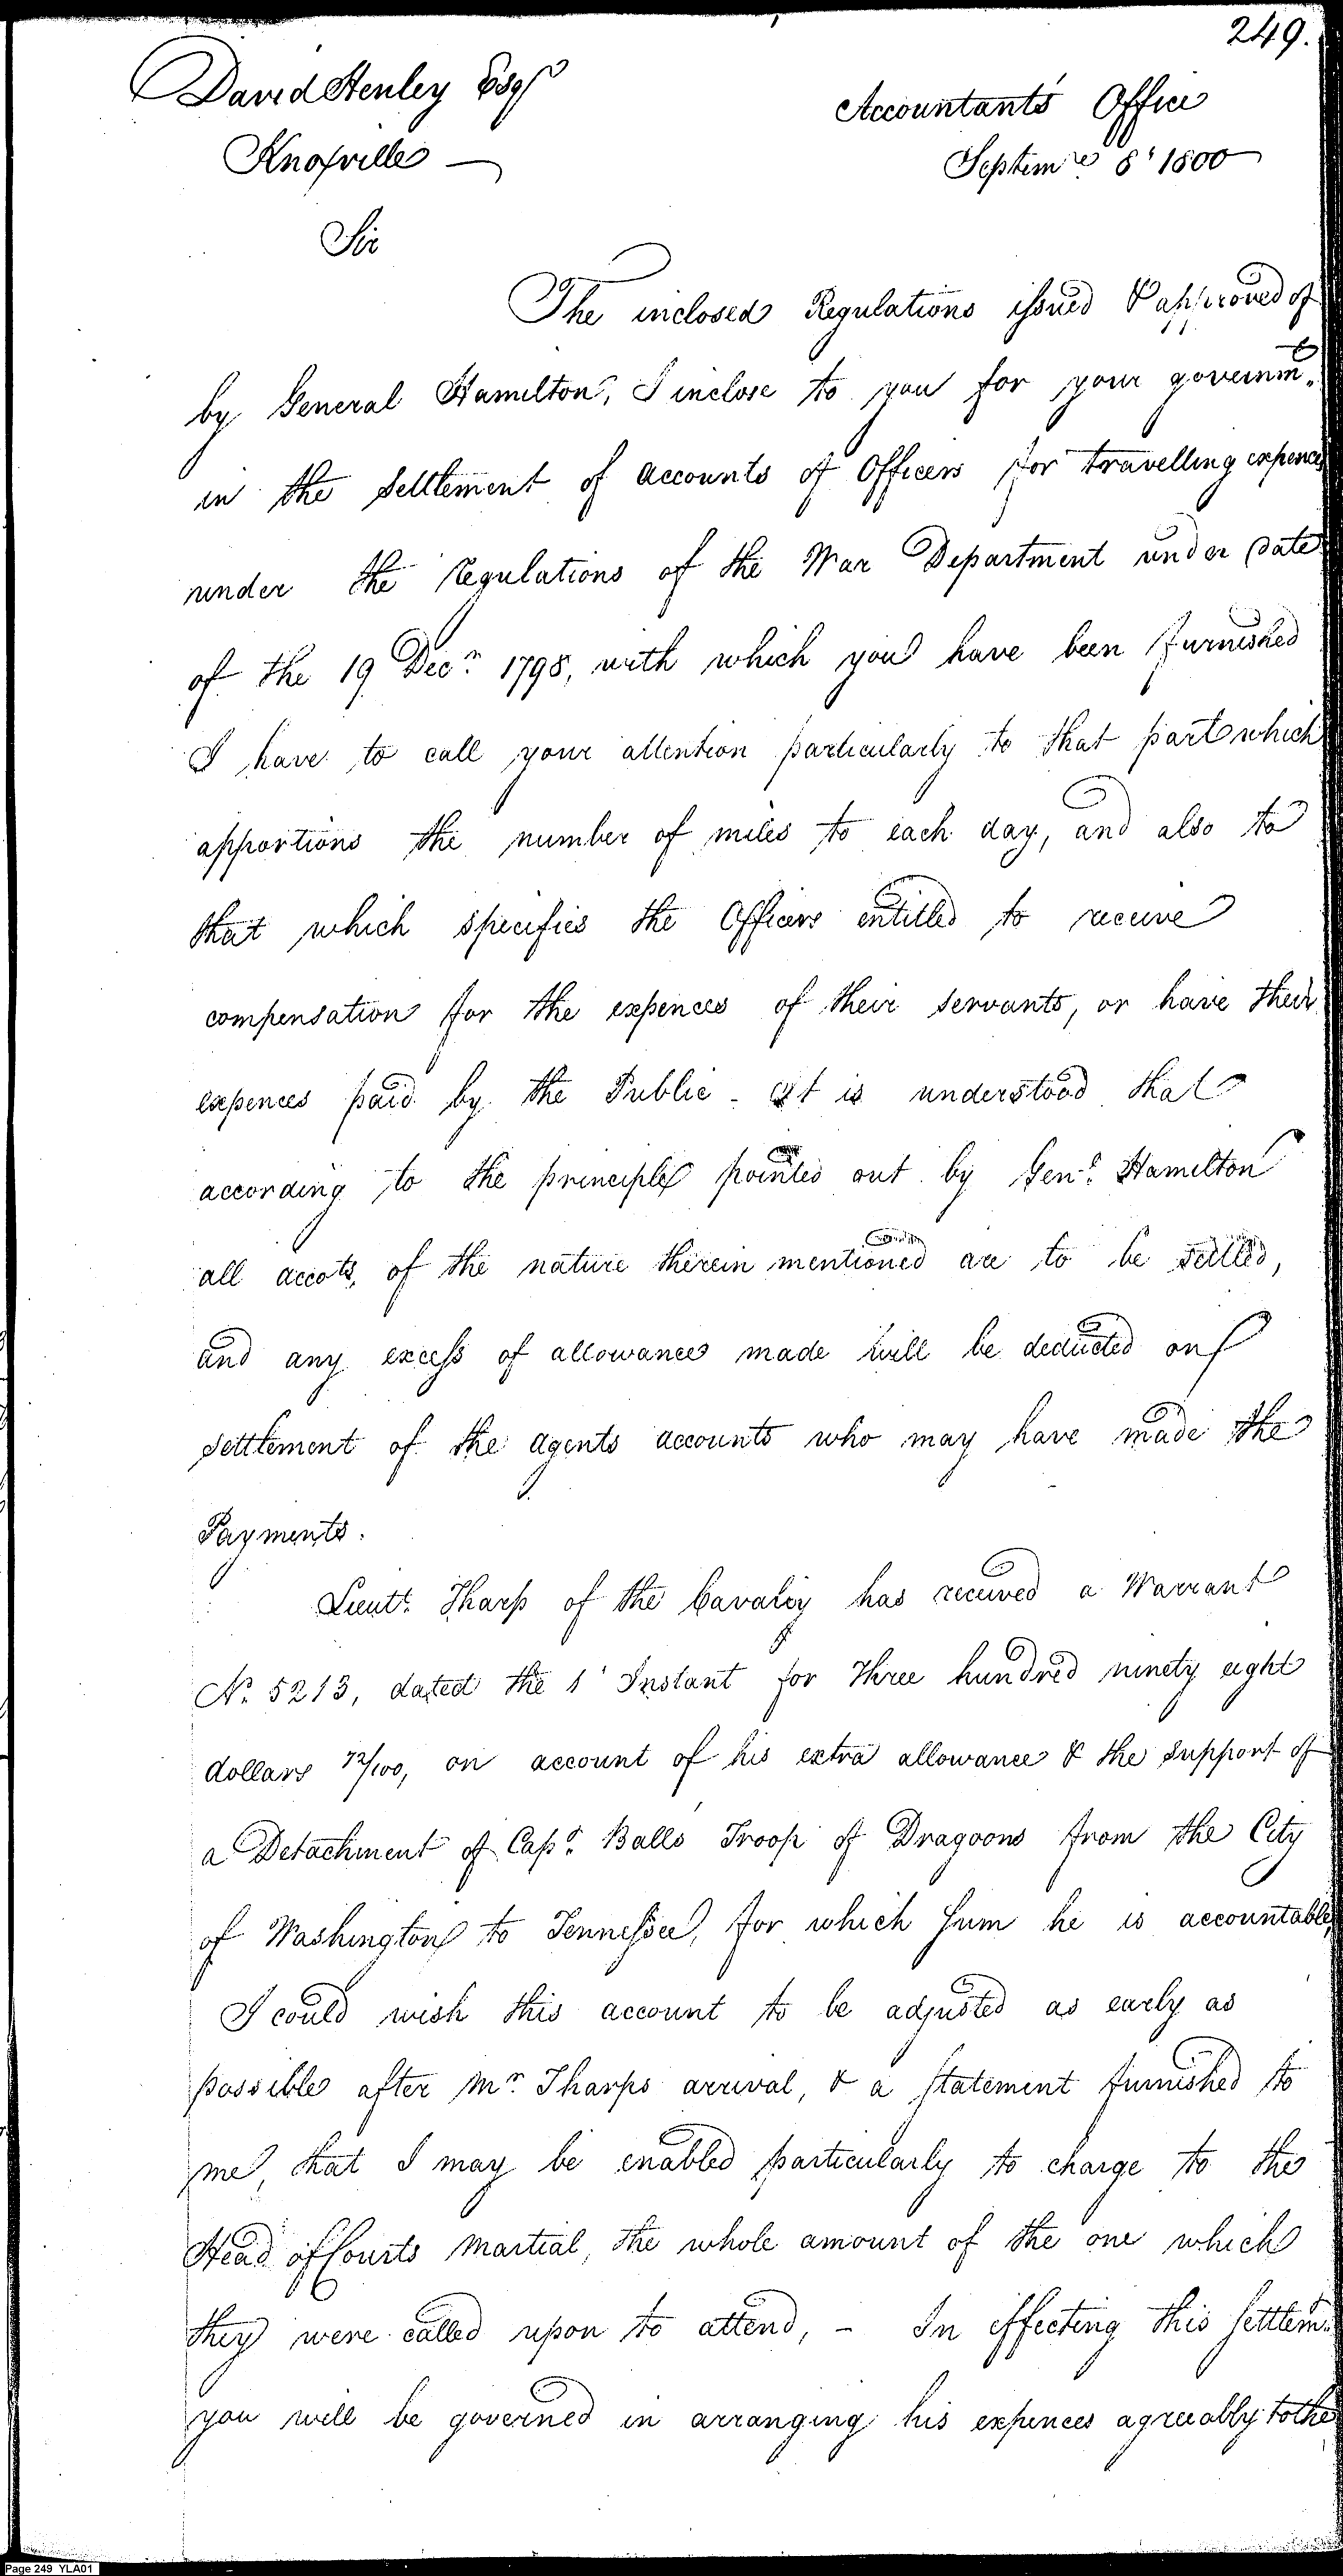 249.
David Henley Esqr
Accountants Office
Knoxville —
Septemre 8' 1800
Sir
The inclosed Regulations issued & approved of
by General Hamilton, I inclose to you for your governmt.
in the settlement of accounts of Officers for travelling expences
under the regulations of the War Department under date
of the 19 Decr. 1798, with which you have been furnished
I have to call your attention particularly to that part which
apportions the number of miles to each day, and also to
that which specifies the Officers entitled to receive
compensation for the expences of their servants, or have their
expences paid by the Public - It is understood that
according to the principle pointed out by Genl. Hamilton
all accots, of the nature therein mentioned are to be settled,
and any excess of allowance made will be deducted on
settlement of the agents accounts who may have made the
Payments.
Lieutt. Tharp of the Cavalry has received a Warrant
No. 5213, dated the 1' Instant for Three hundred ninety eight
dollars 72/100, on account of his extra allowance & the support of
a Detachment of Capt. Balls Troop of Dragoons from the City
of Washington to Tennessee, for which sum he is accountable,
I could wish this account to be adjusted as early as
possible after Mr. Tharps arrival, & a statement furnished to
me, that I may be enabled particularly to charge to the
Head of Courts Martial, the whole amount of the one which
they were called upon to attend, - In effecting this settlemt.
you will be governed in arranging his expences agreeably to the
Page 249 YLA01